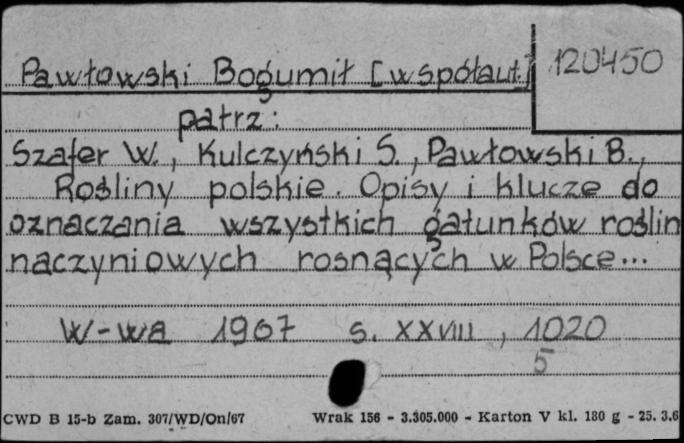 Pawłowski Bogumił [współaut.]
120450
patrz:
Szafer W., Kulczyński S., Pawłowski B.,
Rośliny polskie. Opisy i klucze do
oznaczania wszystkich gatunków roślin
naczyniowych rosnących w Polsce...
W-wa 1967 s. XXVIII, 1020
5
CWD B 15-b Zam. 307/WD/On/67 Wrak 156 - 3.305.000 - Karton V kl. 180 g - 25. 3.6